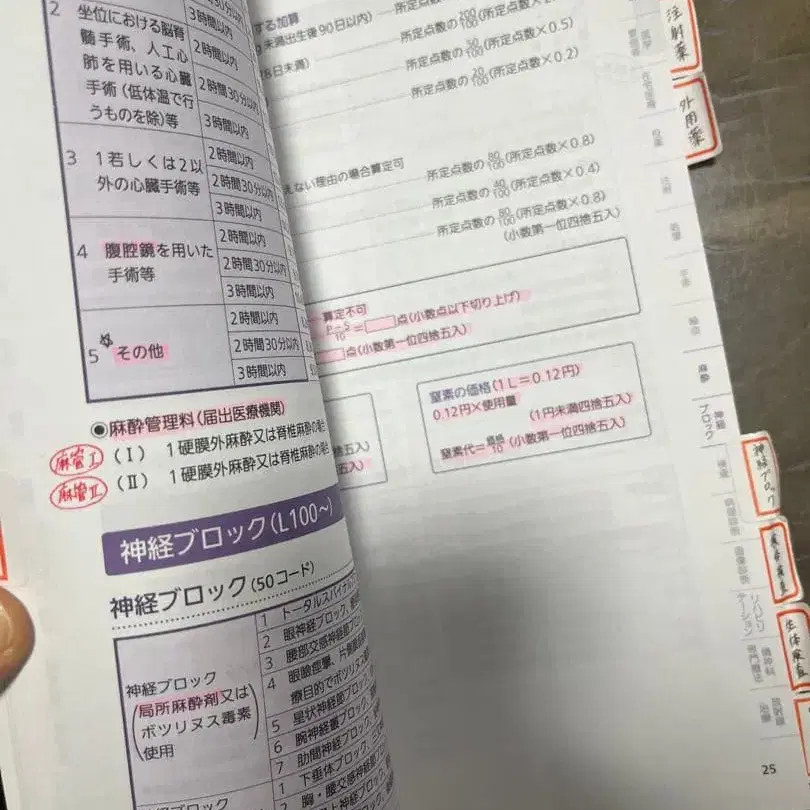 2 坐位における脳脊
髄手術、人工心
肺を用いる心臓
手術(低体温で行
うものを除)等
2時間30分以内
3時間以内
2時間以内
2時間30分以内
3時間以内
3 1若しくは2以
外の心臓手術等
2時間以内
2時間30分以内
3時間以内
4 腹腔鏡を用いた
手術等
2時間以内
2時間30分以内
3時間以内
5 その他
2時間以内
2時間30分以内
3時間以内
◉麻酔管理料(届出医療機関)
麻管Ⅰ (Ⅰ) 1硬膜外麻酔又は脊椎麻酔の場合
麻管Ⅱ (Ⅱ) 1硬膜外麻酔又は脊椎麻酔の場合
神経ブロック(L100~)
神経ブロック(50コード)
神経ブロック
(局所麻酔剤又は
ボツリヌス毒素)
使用
1 トータルスパイナル
2 眼神経ブロック、
3 腰部交感神経節ブロ
4 眼瞼痙攣、片側顔面
療目的でボツリヌス
5 星状神経節ブロック、
6 腕神経叢ブロック、
7 肋間神経ブロック、
1 下垂体ブロック、
2 胸・腰交感神経節
する加算
未満出生後90日以内)
所定点数の
所定点数の50/100(所定点数×0.5)
所定点数の20/100(所定点数×0.2)
えない理由の場合算定可
所定点数の80/100(所定点数×0.8)
所定点数の40/100(所定点数×0.4)
所定点数の80/100(所定点数×0.8)
(小数第一位四捨五入)
算定不可
P-5/10=点(小数点以下切り上げ)
点(小数第一位四捨五入)
五入)
五入)
窒素の価格(1L=0.12円)
0.12円×使用量
(1円未満四捨五入)
窒素代=価格/10(小数第一位四捨五入)
注射薬
外用薬
在宅医療
投薬
注射
処置
手術
輸血
麻酔
神経
ブロック
検査
病理診断
画像診断
リハビリ
テーション
精神科
専門療法
放射線
治療
神経ブロック
生体検査
25